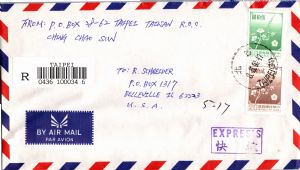 FROM: P.O BOX 28-62 TAIPEI TAIWAN R.O.C.
CHUNG CHAO SUN
TAIPEI
R
0436 100034 6
TO: R. SCHROEDER
P.O. BOX 1317
BELLEVILLE IL 62223
U.S.A.
5-17
BY AIR MAIL
PAR AVION
EXPRESS
快